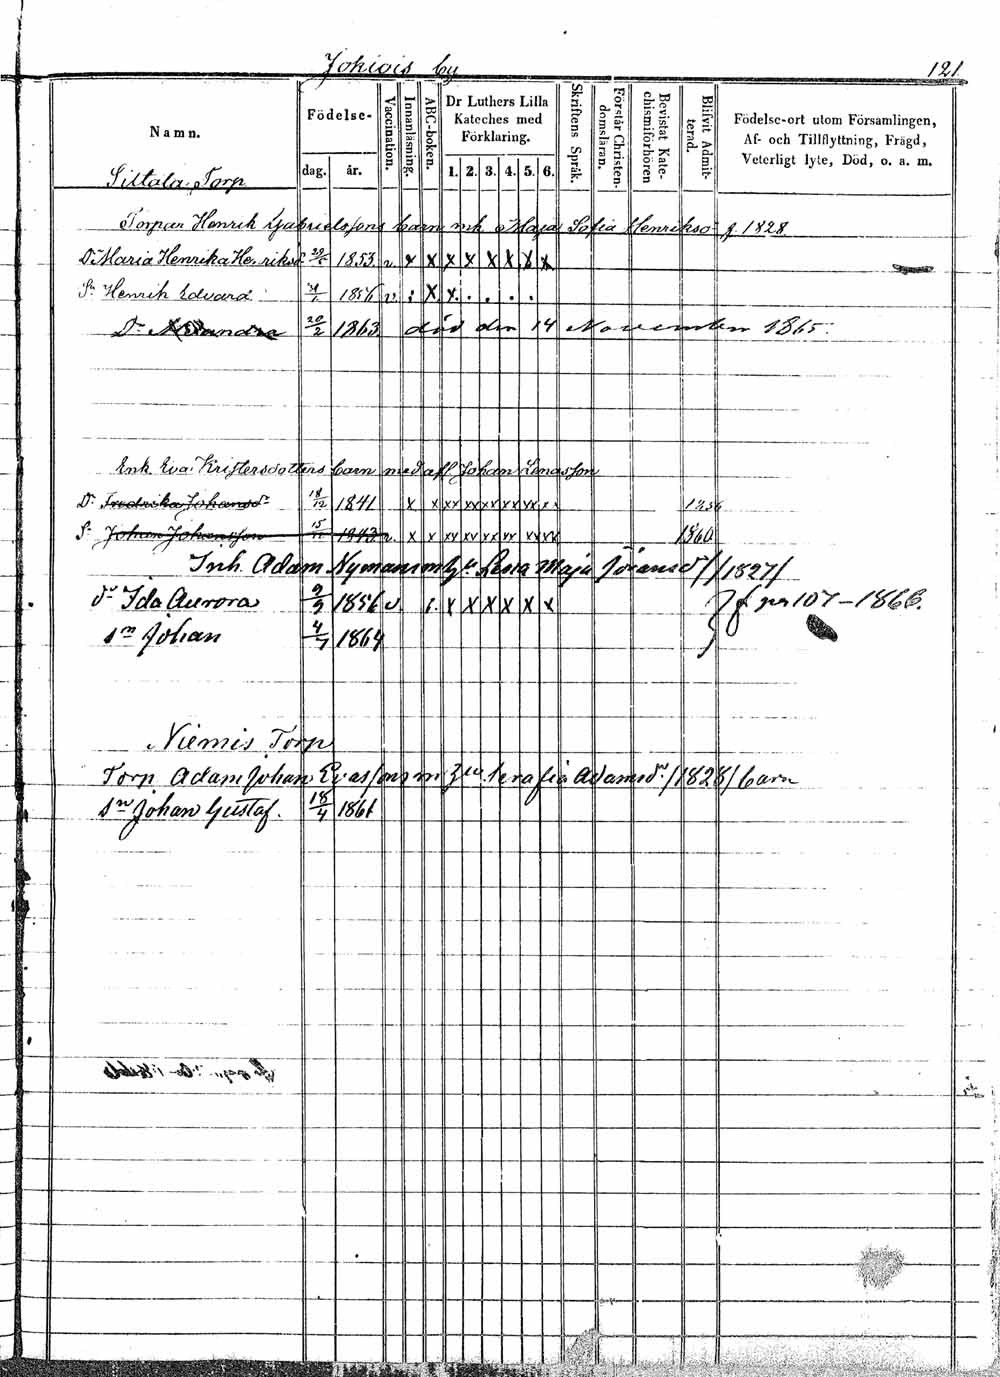 Jokiois by 121.
Namn.
Födelse-
dag. år.
Vaccination.
Innanläsning.
ABC-boken.
Dr Luthers Lilla
Kateches med
Förklaring.
1. 2. 3. 4. 5. 6.
Skriftens Språk.
Förstår Christen-
domsläran.
Bevistat Kate-
chismiförhören
Blifvit Admit-
terad.
Födelse-ort utom Församlingen,
Af- och Tillflyttning, Frägd,
Veterligt lyte, Död, o. a. m.
Siltala Torp
Torpar Henrik Gabrielssons barn m. h. Maja Sofia Henriksd f. 1828
Dr Maria Henrika Henriksd 1853 v. x x x x x x x x
Sn Henrik Edvard 1856 v. : x x . . . . .
Dr 20/2 1863 död den 14 November 1865.
Enk. Eva Kristersdotters barn med afl Johan Enasson
Dr Fredrika Johansdr 18/12 1841 x x xx xx xx xx xx xx
Sn Johan Johansson 15 1843 v. x x xx xx xx xx xx xx 1860
Inh. Adam Nymans m h Lena Maja Göransdr /1827/
dr Ida Aurora 9/9 1856 v x x x x x x 107 - 1866.
sn Johan 4/7 1864
Niemis Torp
Torp. Adam Johan Evassons m Serafia Adamsdr /1828/ barn
sn Johan Gustaf. 18/4 1861